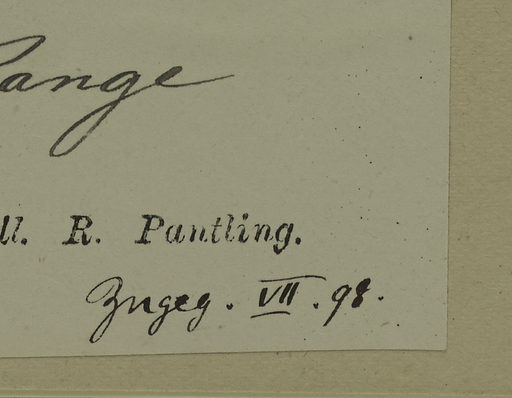 Range
ll. R. Pantling.
Zugeg. VII. 98.